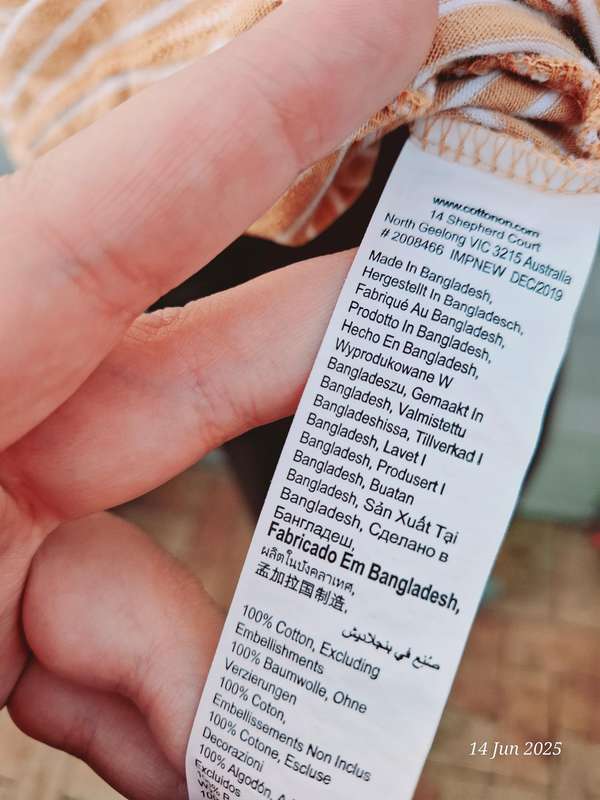 www.cottonon.com
14 Shepherd Court
North Geelong VIC 3215 Australia
# 2008466 IMPNEW DEC/2019
Made In Bangladesh,
Hergestellt In Bangladesch,
Fabriqué Au Bangladesh,
Prodotto In Bangladesh,
Hecho En Bangladesh,
Wyprodukowane W
Bangladeszu, Gemaakt In
Bangladesh, Valmistettu
Bangladeshissa, Tillverkad I
Bangladesh, Lavet I
Bangladesh, Produsert I
Bangladesh, Buatan
Bangladesh, Sản Xuất Tại
Bangladesh, Сделано в
Бангладеш,
Fabricado Em Bangladesh,
ผลิตในบังคลาเทศ,
孟加拉国制造,
صُنِع في بنجلاديش
100% Cotton, Excluding
Embellishments
100% Baumwolle, Ohne
Verzierungen
100% Coton,
Embellissements Non Inclus
100% Cotone, Escluse
Decorazioni
100% Algodón,
Excluidos
14 Jun 2025